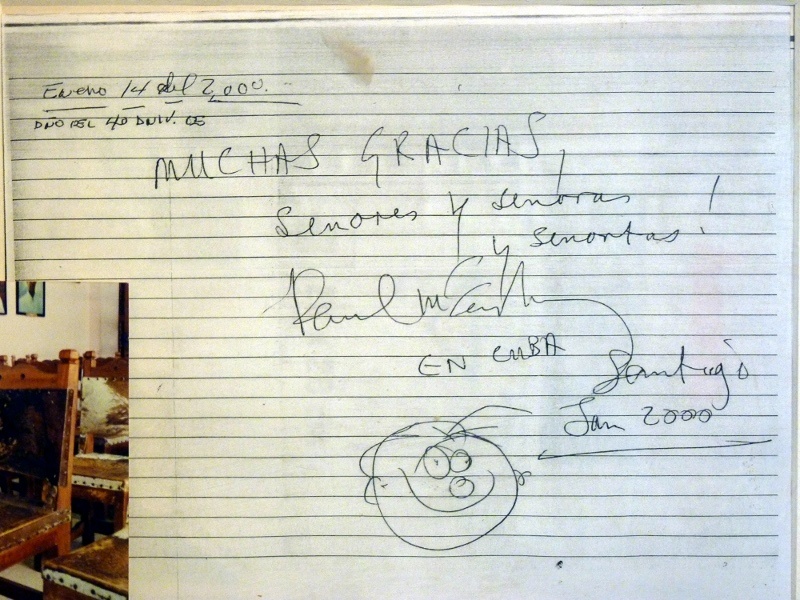 Enero 14 del 2,000.
MUCHAS GRACIAS,
Senores y senoras !
y senoritas !
Paul McCartney
EN CUBA
Santiago
Jan 2000